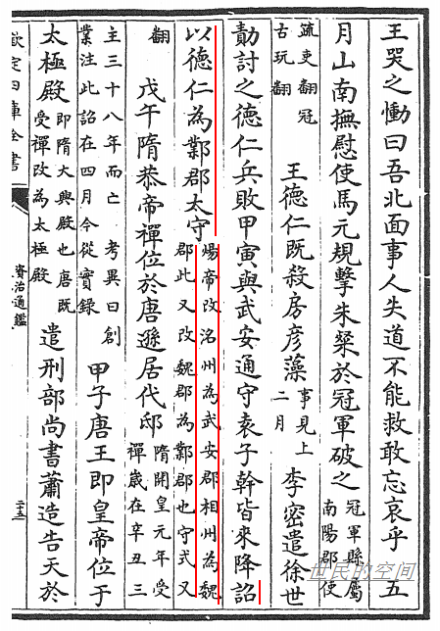 王哭之慟曰吾北面事人失道不能救敢忘哀乎 五
月山南撫慰使馬元規擊朱粲於冠軍破之冠軍縣屬南陽郡使
疏吏翻冠古玩翻 王德仁既殺房彥藻事見上二月 李密遣徐世
勣討之德仁兵敗甲寅與武安通守袁子幹皆來降詔
以德仁為鄴郡太守煬帝改洺州為武安郡相州為魏郡此又改魏郡為鄴郡也守式又
翻 戊午隋恭帝禪位於唐遜居代邸隋開皇元年受禪歲在辛丑三
主三十八年而亡 考異曰創業注此詔在四月今從實錄 甲子唐王即皇帝位于
太極殿即隋大興殿也唐既受禪改為太極殿 遣刑部尚書蕭造告天於
欽定四庫全書
資治通鑑
世民的空间